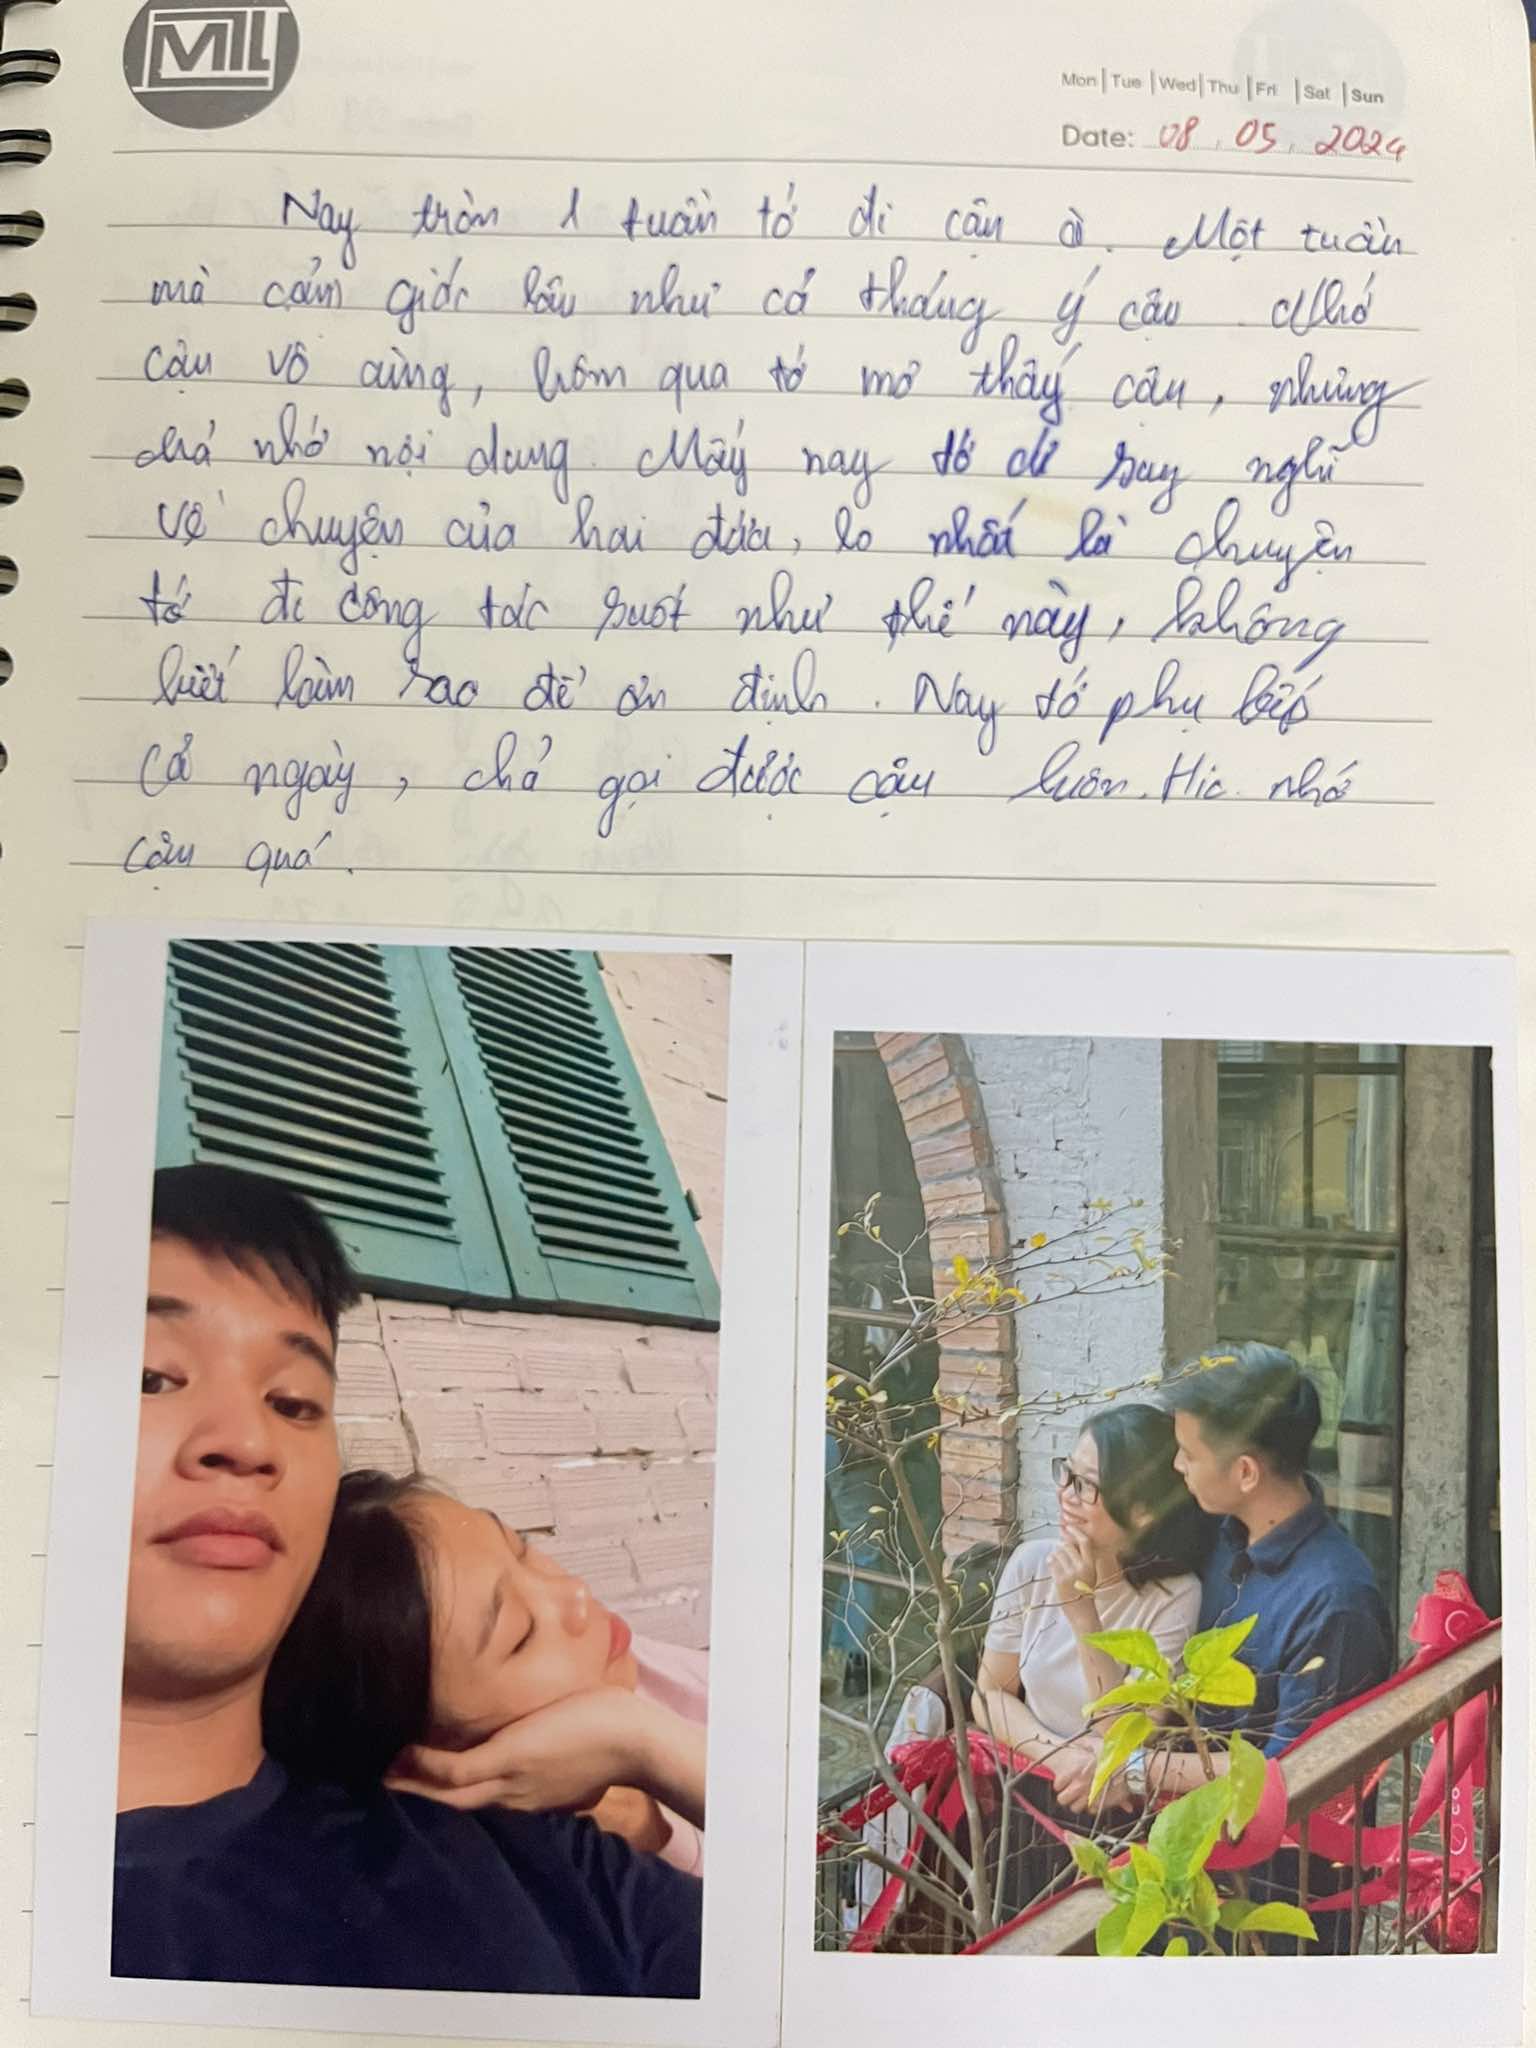 MTL
Mon | Tue | Wed | Thu | Fri | Sat | Sun
Date: 08. 05. 2024
Nay tròn 1 tuần tớ đi cậu ờ. Một tuần
mà cảm giác lâu như cả tháng ý cậu. Nhớ
cậu vô cùng, hôm qua tớ mơ thấy cậu, nhưng
chả nhớ nội dung. Mấy nay tớ cứ suy nghĩ
về chuyện của hai đứa, lo nhất là chuyện
tớ đi công tác suốt như thế này, không
biết làm sao để ổn định. Nay tớ phụ bếp
cả ngày, chả gọi được cậu luôn. Hic. nhớ
cậu quá.